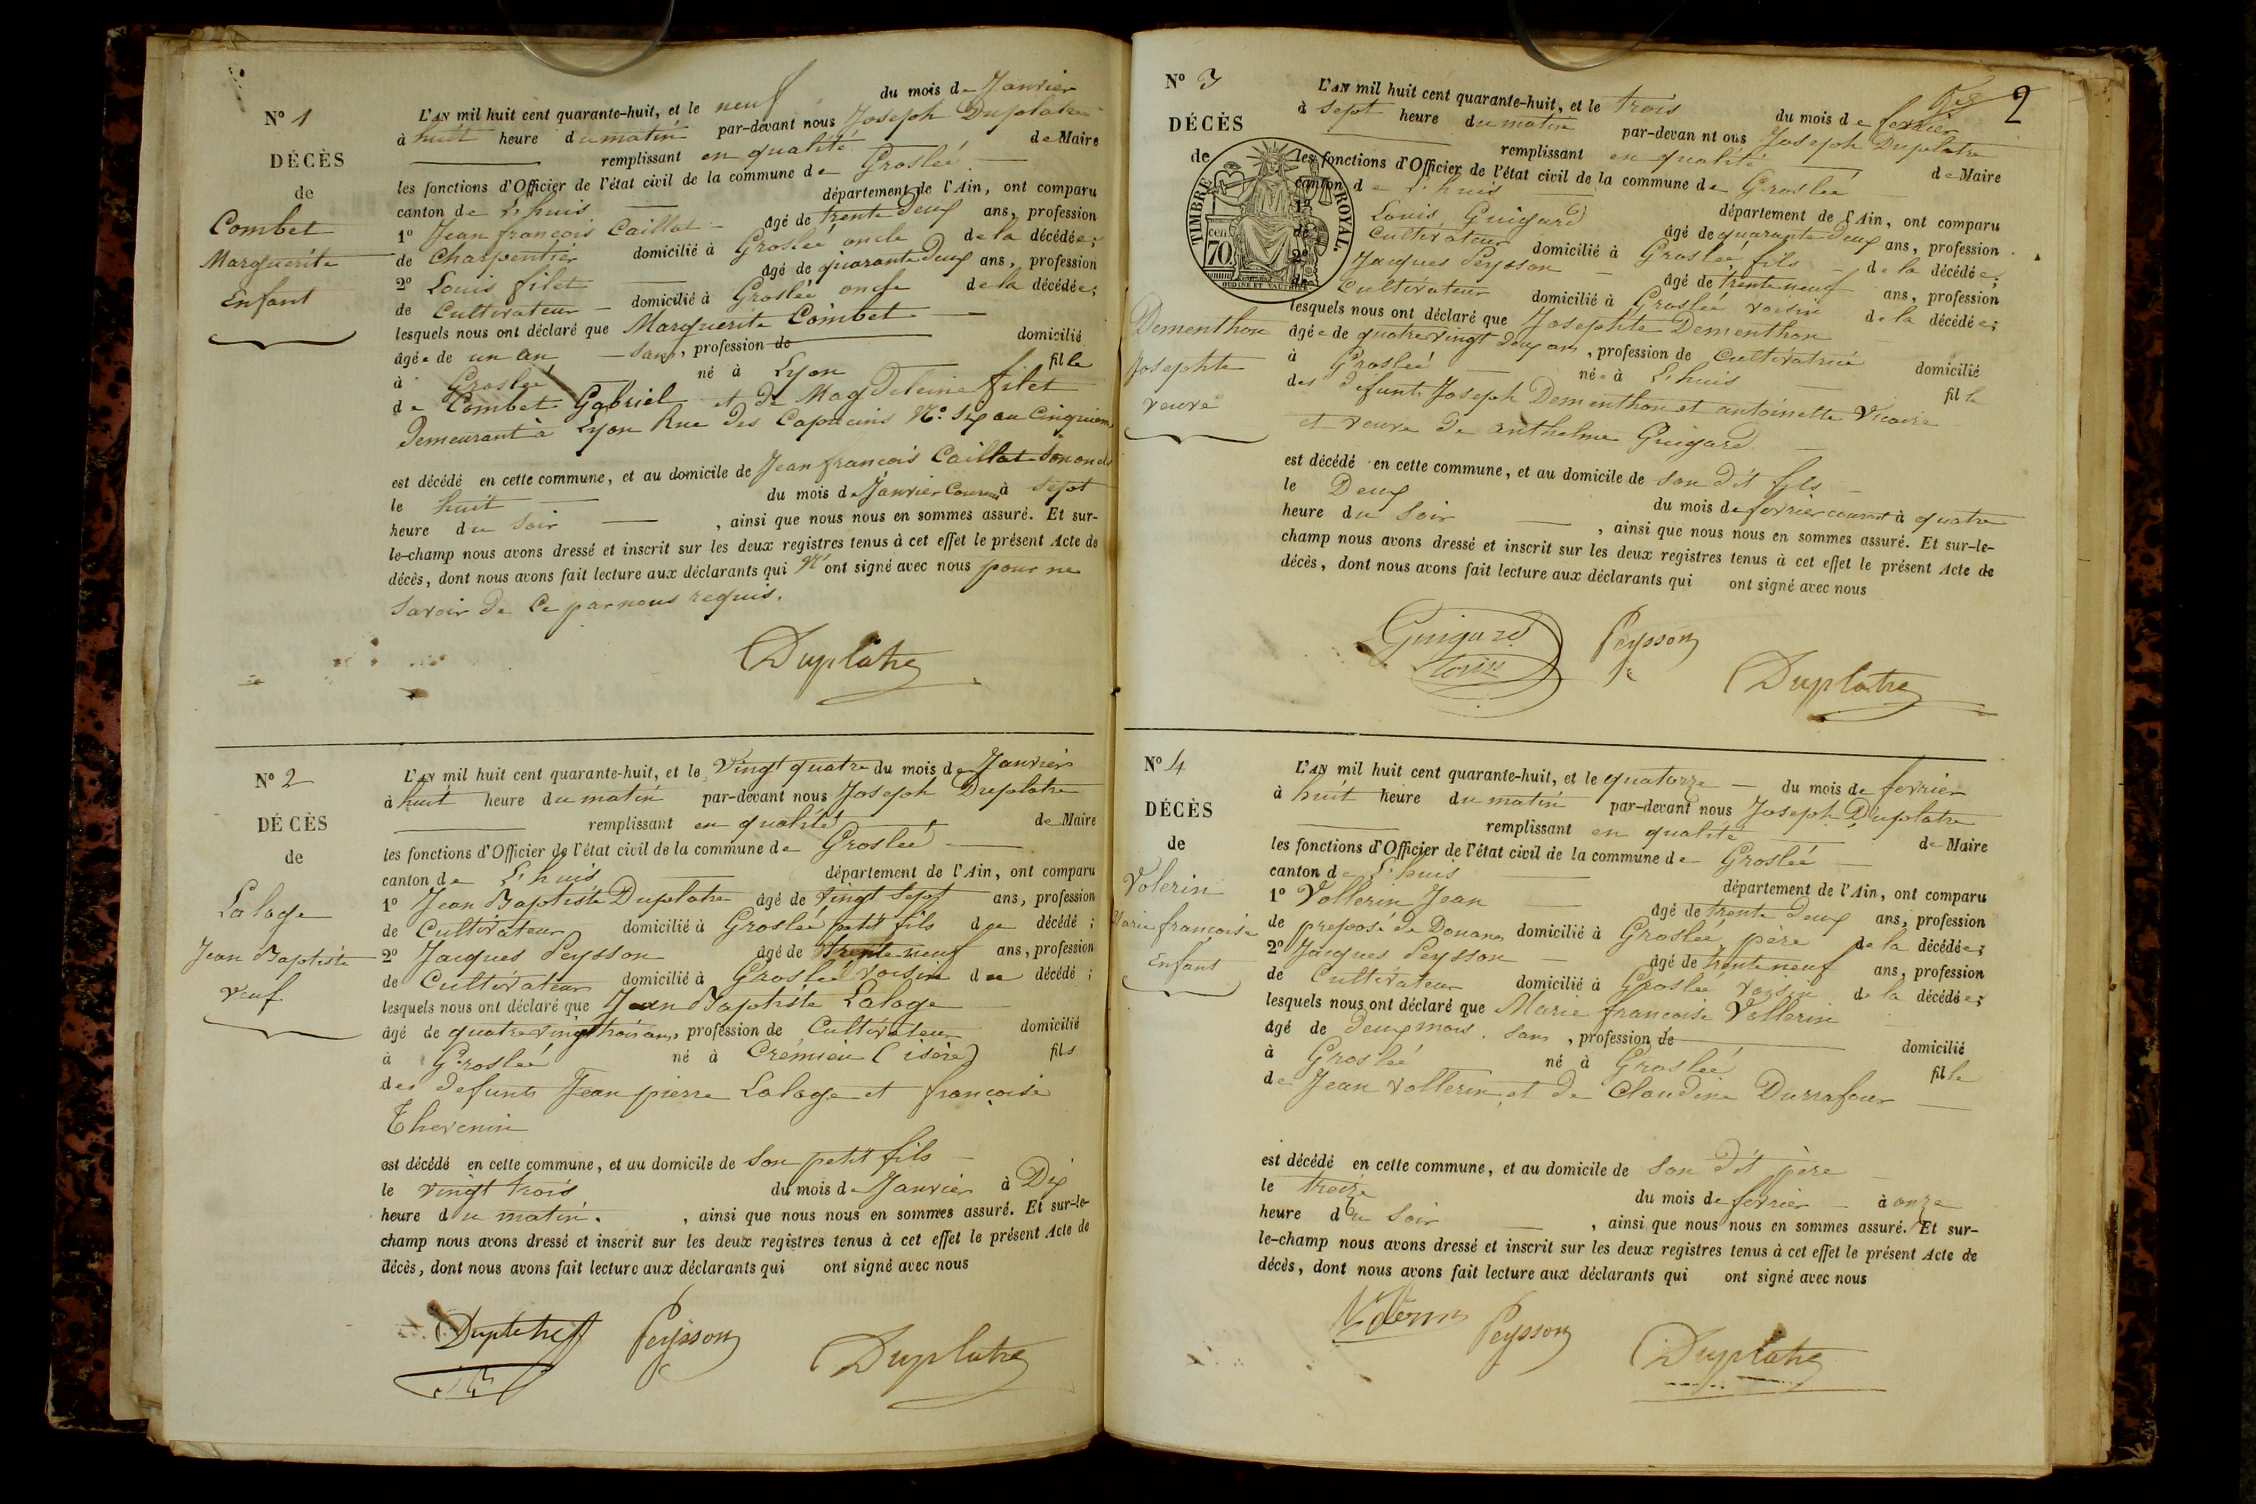 Nº 1
DÉCÈS
de
Combet
Marguerite
Enfant
L'AN mil huit cent quarante-huit, et le neuf du mois de Janvier
à huit heure du matin par-devant nous Joseph Duplatre
remplissant en qualité de Maire
les fonctions d'Officier de l'état civil de la commune de Groslée
canton de L'huis département de l'Ain, ont comparu
1º Jean françois Caillat âgé de trente deux ans, profession
de Charpentier domicilié à Groslée oncle de la décédée;
2º Louis filet âgé de quarante deux ans, profession
de Cultivateur domicilié à Groslée oncle de la décédée;
lesquels nous ont déclaré que Marguerite Combet
âgée de un an sans, profession de domicilié
à Groslée né à Lyon fille
de Combet Gabriel et de Magdeleine filet
demeurant à Lyon Rue des Capucins Nº. six au Cinquiem
est décédé en cette commune, et au domicile de Jean françois Caillat son oncle
le huit du mois de Janvier Courant à sept
heure du Soir, ainsi que nous nous en sommes assuré. Et sur-
le-champ nous avons dressé et inscrit sur les deux registres tenus à cet effet le présent Acte de
décès, dont nous avons fait lecture aux déclarants qui N' ont signé avec nous pour ne
savoir de Ce par nous requis.
Duplatre
Nº 2
DÉCÈS
de
Lalage
Jean Baptiste
veuf
L'AN mil huit cent quarante-huit, et le Vingt quatre du mois de Janvier
à huit heure du matin par-devant nous Joseph Duplatre
remplissant en qualité de Maire
les fonctions d'Officier de l'état civil de la commune de Groslée
canton de L'huis département de l'Ain, ont comparu
1º Jean Baptiste Duplatre âgé de vingt sept ans, profession
de Cultivateur domicilié à Groslée petit fils du décédé;
2º Jacques Peysson âgé de trente neuf ans, profession
de Cultivateur domicilié à Groslée Voisin du décédé;
lesquels nous ont déclaré que Jean Baptiste Lalage
âgé de quatre vingt trois ans, profession de Cultivateur domicilié
à Groslée né à Crémieu (isère) fils
des defunts Jean pierre Lalage et françoise
Thevenin
est décédé en cette commune, et au domicile de Son petit fils
le vingt trois du mois de Janvier à Dix
heure du matin., ainsi que nous nous en sommes assuré. Et sur-le-
champ nous avons dressé et inscrit sur les deux registres tenus à cet effet le présent Acte de
décès, dont nous avons fait lecture aux déclarants qui ont signé avec nous
Duplatre Peysson Duplatre
2
Nº 3
DÉCÈS
de
TIMBRE ROYAL.
70 cen
Dementhon
Josephte
veuve
L'AN mil huit cent quarante-huit, et le trois du mois de fevrier
à sept heure du matin par-devan nt ous Joseph Duplatre
remplissant en qualité de Maire
les fonctions d'Officier de l'état civil de la commune de Groslée
canton de L'huis département de l'Ain, ont comparu
1º Louis Guigard âgé de quarante deux ans, profession
de Cultivateur domicilié à Groslée fils de la décédée;
2º Jacques Peysson âgé de trente neuf ans, profession
de Cultivateur domicilié à Groslée voisin de la décédée;
lesquels nous ont déclaré que Josephte Dementhon
âgée de quatre vingt deux ans, profession de Cultivatrice domicilié
à Groslée née à L'huis fille
des defunts Joseph Dementhon et antoinette Vicaire
et veuve de anthelme Guigard
est décédé en cette commune, et au domicile de son dit fils
le Deux du mois de fevrier courant à quatre
heure du Soir, ainsi que nous nous en sommes assuré. Et sur-le-
champ nous avons dressé et inscrit sur les deux registres tenus à cet effet le présent Acte de
décès, dont nous avons fait lecture aux déclarants qui ont signé avec nous
Guigard Peysson
Louis
Duplatre
Nº 4
DÉCÈS
de
Volerin
Marie françoise
Enfant
L'AN mil huit cent quarante-huit, et le quatorze du mois de fevrier
à huit heure du matin par-devant nous Joseph Duplatre
remplissant en qualité de Maire
les fonctions d'Officier de l'état civil de la commune de Groslée
canton de L'huis département de l'Ain, ont comparu
1º Vollerin Jean âgé de trente deux ans, profession
de preposé de Douanes domicilié à Groslée père de la décédée;
2º Jacques Peysson âgé de trente neuf ans, profession
de Cultivateur domicilié à Groslée voisin de la décédée;
lesquels nous ont déclaré que Marie francoise Vollerin
âgé de deux mois. sans, profession de domicilié
à Groslée né à Groslée fille
de Jean vollerin et de Claudine Durrafour
est décédé en cette commune, et au domicile de son dit père
le treize du mois de fevrier à onze
heure du Soir, ainsi que nous nous en sommes assuré. Et sur-
le-champ nous avons dressé et inscrit sur les deux registres tenus à cet effet le présent Acte de
décès, dont nous avons fait lecture aux déclarants qui ont signé avec nous
Volerin Peysson
Duplatre